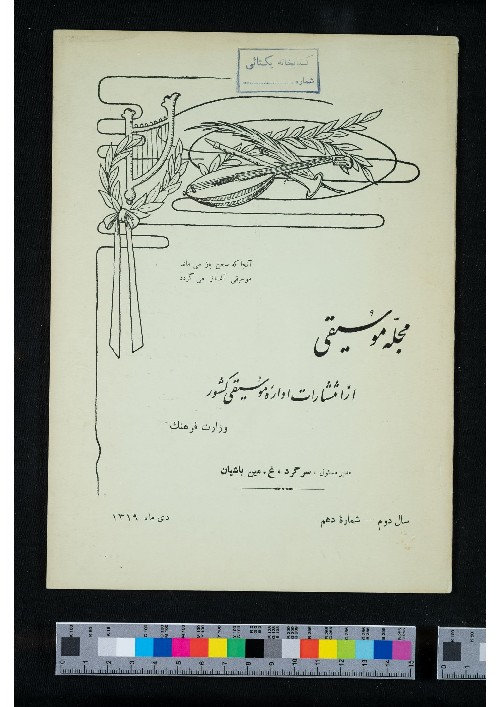 کتابخانه یکتائی
شماره
آنجا که سخن باز می ماند
موسیقی آغاز می گردد
مجلّه موسیقی
از انتشارات ادارهٔ موسیقی کشور
وزارت فرهنگ
مدیر مسئول : سرگرد ، غ . مین باشیان
سال دوم شمارهٔ دهم دی ماه ۱۳۱۹
0 1 2 3 4 5 6 7 8 9 10 11 12 13 14 15